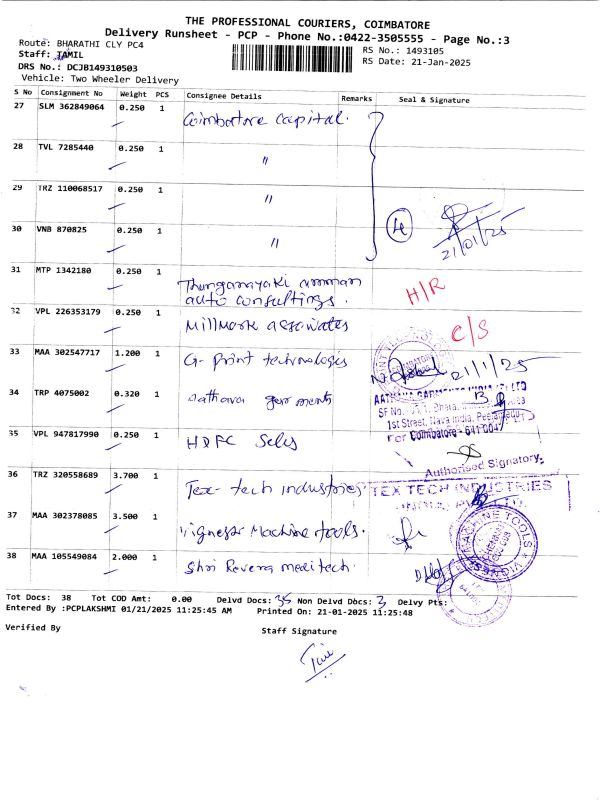 THE PROFESSIONAL COURIERS, COIMBATORE
Delivery Runsheet - PCP - Phone No.:0422-3505555 - Page No.:3
Route: BHARATHI CLY PC4
RS No.: 1493105
Staff: TAMIL
RS Date: 21-Jan-2025
DRS No.: DCJB149310503
Vehicle: Two Wheeler Delivery
S No Consignment No Weight PCS Consignee Details Remarks Seal & Signature
27 SLM 362849064 0.250 1 Coimbatore Capital.
28 TVL 7285440 0.250 1 "
29 TRZ 110068517 0.250 1 "
30 VNB 870825 0.250 1 "
4
21/01/25
31 MTP 1342180 0.250 1 Thunganayaki amman
auto consultings.
H/R
32 VPL 226353179 0.250 1 Millmark associates
C/S
33 MAA 302547717 1.200 1 G- Print technologis
21/1/25
34 TRP 4075002 0.320 1 aathava garments
AATHAVA GARMENTS INDIA (P) LTD
1st Street, Nava India, Peelamedu
For Coimbatore - 641 004
35 VPL 947817990 0.250 1 HDFC Sales
Authorised Signatory
36 TRZ 320558689 3.700 1 Tex- tech industries
TEX TECH INDUSTRIES
37 MAA 302378085 3.500 1 Vignesh Machine tools.
MACHINE TOOLS
38 MAA 105549084 2.000 1 Shri Revera meditech
Tot Docs: 38 Tot COD Amt: 0.00 Delvd Docs: 35 Non Delvd Docs: 3 Delvy Pts:
Entered By :PCPLAKSHMI 01/21/2025 11:25:45 AM Printed On: 21-01-2025 11:25:48
Verified By
Staff Signature